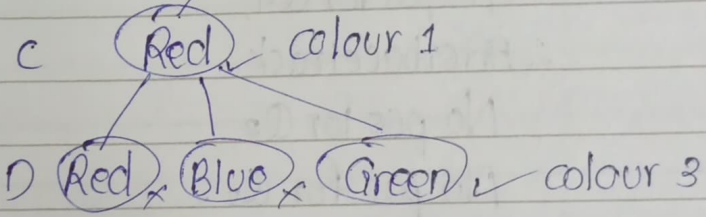 C Red ✓ colour 1
D Red × Blue × Green ✓ colour 3